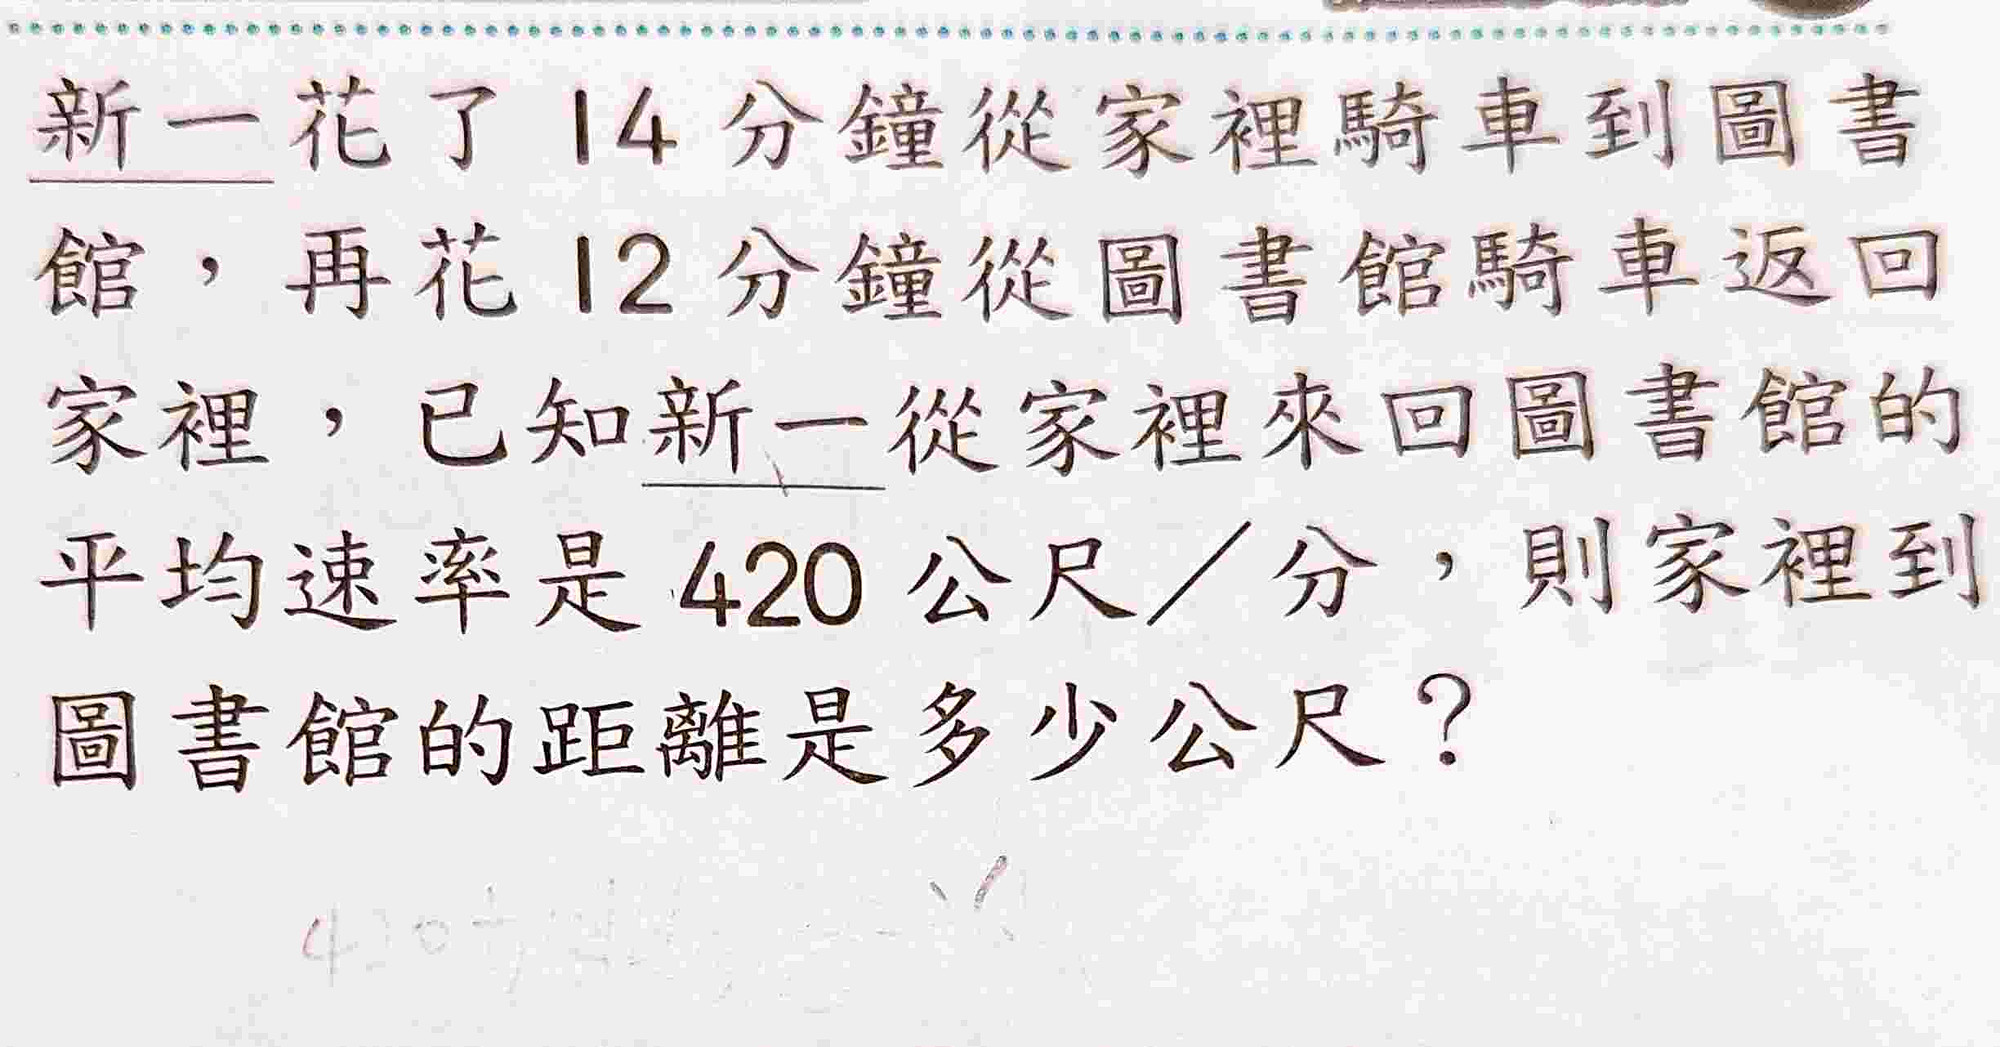 新一花了 14 分鐘從家裡騎車到圖書
館，再花 12 分鐘從圖書館騎車返回
家裡，已知新一從家裡來回圖書館的
平均速率是 420 公尺／分，則家裡到
圖書館的距離是多少公尺？